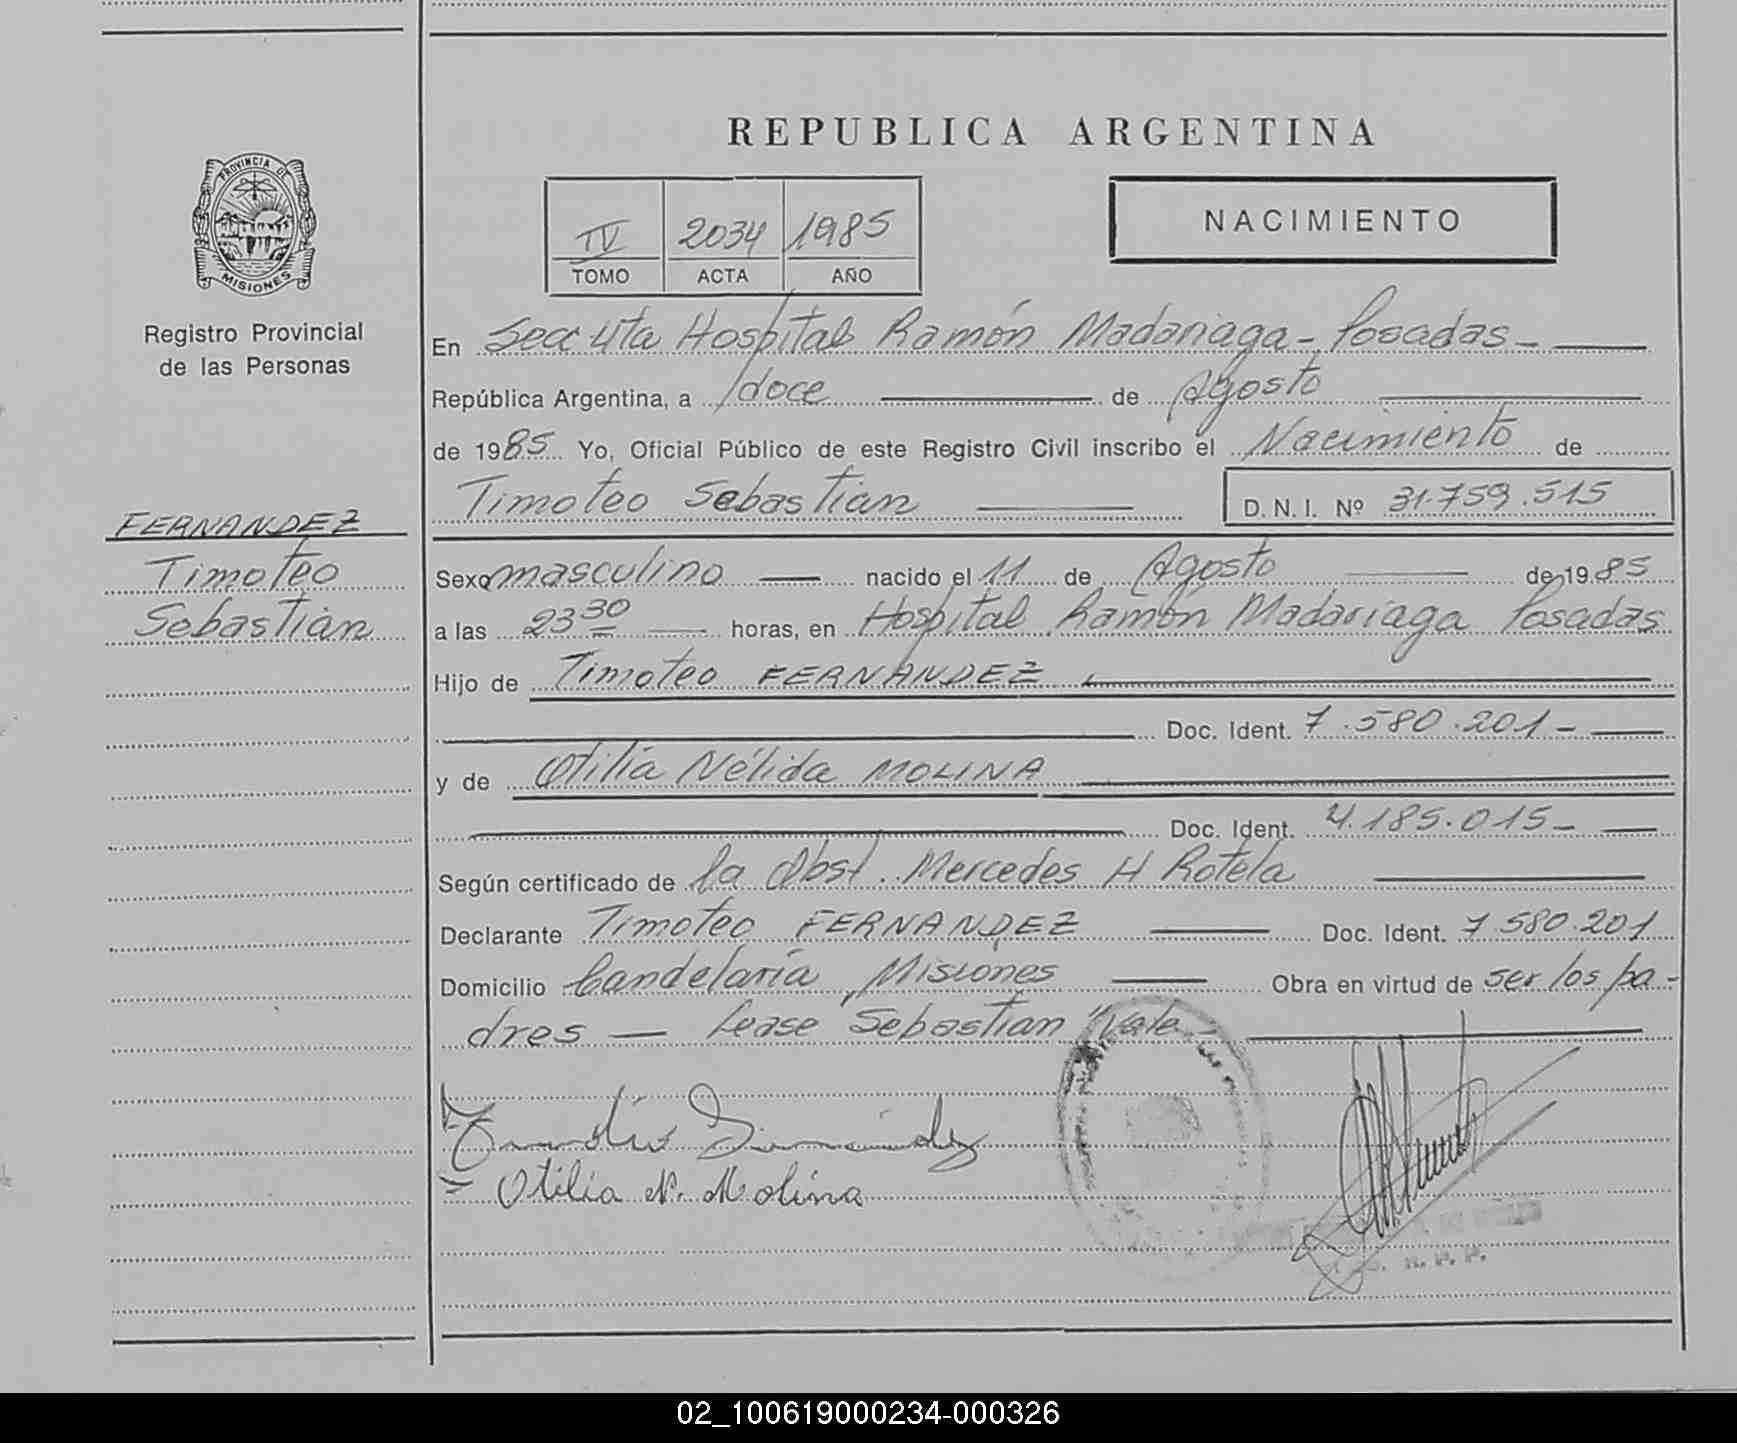 REPUBLICA ARGENTINA
PROVINCIA DE
MISIONES
Registro Provincial
de las Personas
IV 2034 1985
TOMO ACTA AÑO
NACIMIENTO
En Secc 4ta Hospital Ramón Madariaga - Posadas -
República Argentina, a doce de Agosto
de 1985 Yo, Oficial Público de este Registro Civil inscribo el Nacimiento de
Timoteo Sebastian D. N. I. Nº 31.759.515
FERNANDEZ
Timoteo
Sebastián
Sexo masculino nacido el 11 de Agosto de 1985
a las 23 30 horas, en Hospital Ramón Madariaga Posadas
Hijo de Timoteo FERNANDEZ
Doc. Ident. 7.580.201 -
y de Otilia Nélida MOLINA
Doc. Ident. 4.185.015 -
Según certificado de la Obst. Mercedes H Rotela
Declarante Timoteo FERNANDEZ Doc. Ident. 7.580.201
Domicilio Candelaria, Misiones Obra en virtud de ser los pa-
dres — Lease "Sebastian" Vale -
Otilia N. Molina
02_100619000234-000326